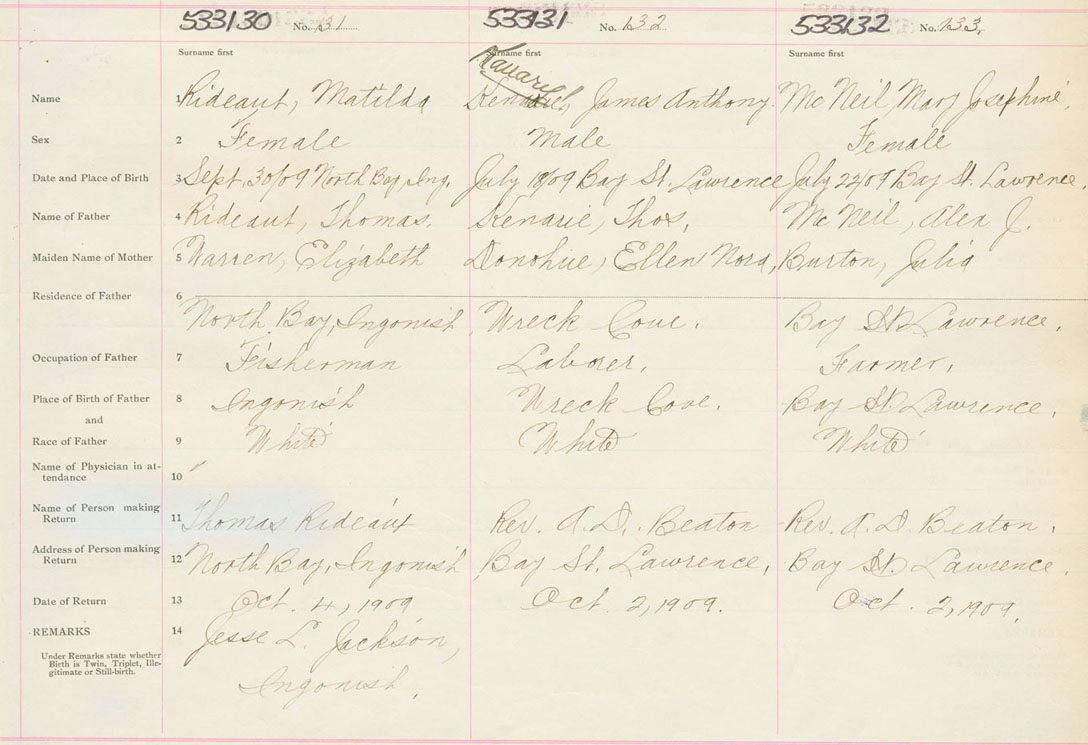 533130 No. 131 533131 No. 132 533132 No. 133,
Surname first Surname first Surname first
Kanarie
Name 1 Rideaut, Matilda Kenarie, James Anthony. Mc Neil, Mary Josephine,
Sex 2 Female Male Female
Date and Place of Birth 3 Sept, 30/09 North Bay, Ing. July 18/09 Bay St. Lawrence July 22/09 Bay St. Lawrence,
Name of Father 4 Rideaut, Thomas. Kenarie, Thos, Mc Neil, Alex J.
Maiden Name of Mother 5 Warren, Elizabeth Donohue, Ellen Nora, Burton, Julia
Residence of Father 6
North Bay, Ingonish Wreck Cove. Bay St. Lawrence,
Occupation of Father 7 Fisherman Laborer, Farmer,
Place of Birth of Father 8 Ingonish Wreck Cove. Bay St. Lawrence,
and
Race of Father 9 White White White
Name of Physician in at-
tendance 10 "
Name of Person making
Return 11 Thomas Rideaut Rev. A. D. Beaton Rev. A. D. Beaton,
Address of Person making
Return 12 North Bay, Ingonish Bay St. Lawrence, Bay St. Lawrence,
Date of Return 13 Oct. 4, 1909 Oct. 2, 1909. Oct. 2, 1909.
REMARKS 14 Jesse L. Jackson,
Under Remarks state whether
Birth is Twin, Triplet, Ille-
gitimate or Still-birth.
Ingonish,